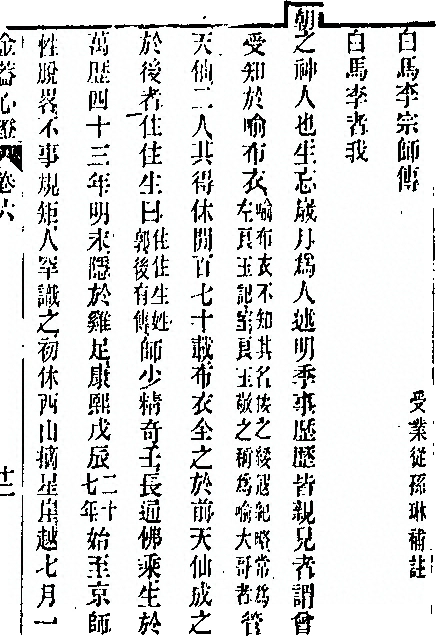 白馬李宗師傳
受業從孫琳補註
白馬李者我
朝之神人也生忘歲月爲人述明季事歷歷皆親見者謂曾
受知於喻布衣喻布衣不知其名之綏寇紀略常爲左良玉記室良玉敬之稱爲喻大哥者管
天仙二人其得休閒百七十載布衣全之於前天仙成之
於後者住住生曰住住生姓郭後有傳師少精奇壬長通佛乘生於
萬歷四十三年明末隱於雞足康熙戊辰二十七年始至京師
性脫畧不事規矩人罕識之初休西山摘星崖越七月一
金蓋心燈 卷六